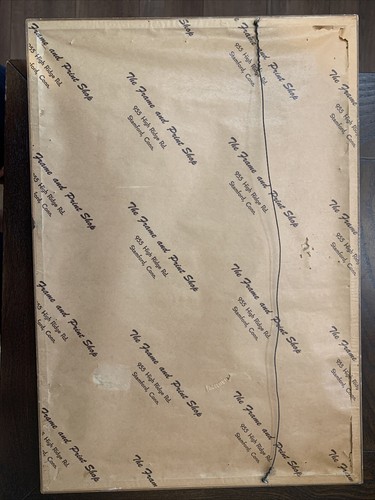 Shop
The Frame and Print Shop
955 High Ridge Rd.
Stamford, Conn.
Frame and Print Shop
955 High Ridge Rd.
ford, Conn.
The Frame and Print Shop
955 High Ridge Rd.
Stamford, Conn.
The Frame
955 High
Stamford
Frame and Print Shop
High Ridge Rd.
ford, Conn.
The Frame and Print Shop
955 High Ridge Rd.
Stamford, Conn.
The Frame and Print Shop
955 High Ridge Rd.
Stamford, Conn.
The Frame
955 High
Stamford
Frame and Print Shop
High Ridge Rd.
ford, Conn.
The Frame and Print Shop
955 High Ridge Rd.
Stamford, Conn.
The Frame and Print Shop
955 High Ridge Rd.
Stamford, Conn.
The Frame
955 High
Stamford
Frame and Print Shop
High Ridge Rd.
d, Conn.
The Fram
The Frame and Print Shop
955 High Ridge Rd.
Stamford, Conn.
The